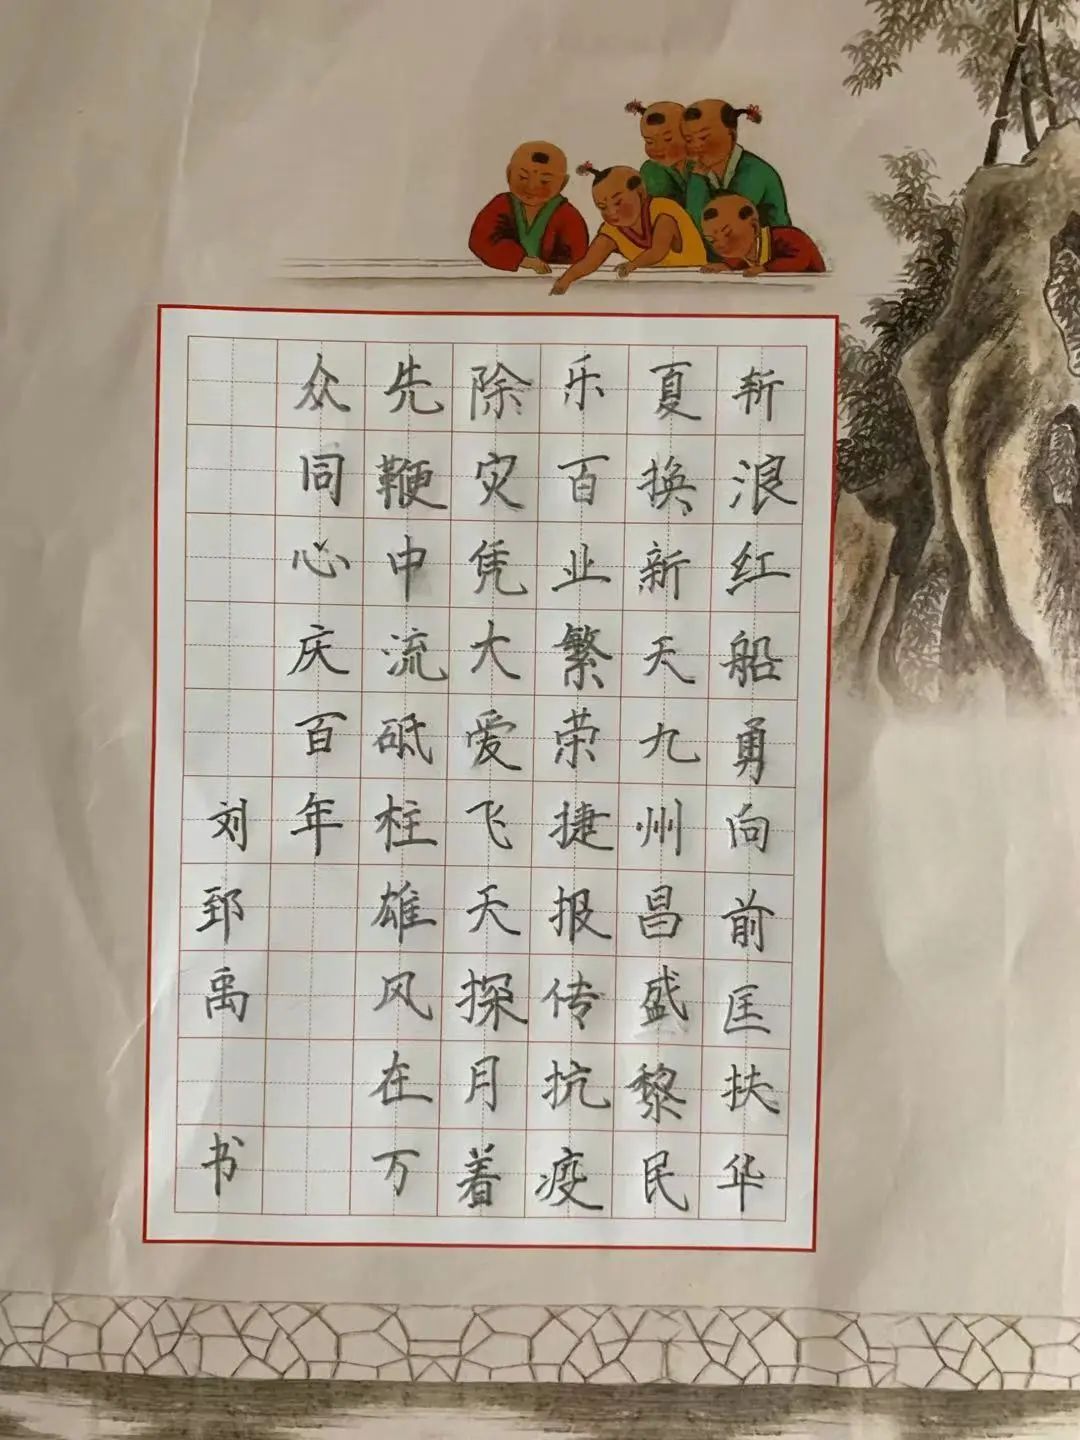 斩浪红船勇向前匡扶华
夏换新天九州昌盛黎民
乐百业繁荣捷报传抗疫
除灾凭大爱飞天探月着
先鞭中流砥柱雄风在万
众同心庆百年
刘郅禹书